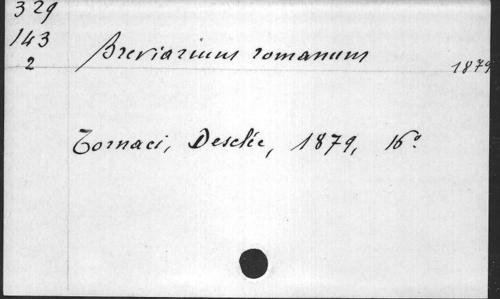 329
143
2
Breviarium romanum
1879
Tornaci, Desclée, 1879, 16º